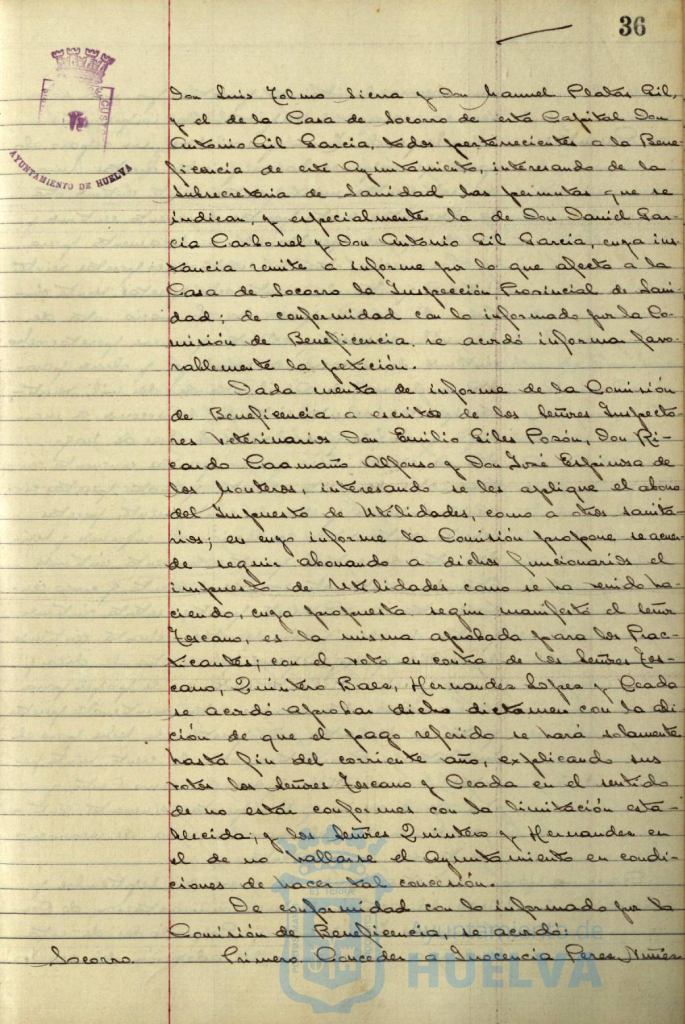 36
AYUNTAMIENTO DE HUELVA
Don Luis Tolmo Sierra y Don Manuel Platas Gil,
y el de la Casa de Socorro de esta Capital Don
Antonio Gil García, todos pertenecientes a la Bene-
ficencia de este Ayuntamiento, interesando de la
Subsecretaria de Sanidad las permutas que se
indican, y especialmente la de Don Daniel Gar-
cía Carbonel y Don Antonio Gil García, cuya ins-
tancia remite a informe por lo que afecta a la
Casa de Socorro la Inspección Provincial de Sani-
dad; de conformidad con lo informado por la Co-
misión de Beneficencia, se acordó informar favo-
rablemente la petición.
Dada cuenta de informe de la Comisión
de Beneficencia a escritos de los Señores Inspecto-
res Veterinarios Don Emilio Giles Pozón, Don Ri-
cardo Caamaño Alfonso y Don José Espinosa de
los Monteros, interesando se les aplique el abono
del Impuesto de Utilidades, como a otros sanita-
rios; en cuyo informe la Comisión propone se acuer-
de seguir abonando a dichos funcionarios el
impuesto de Utilidades como se ha venido ha-
ciendo, cuya propuesta, según manifestó el Señor
Toscano, es la misma aprobada para los Prac-
ticantes; con el voto en contra de los Señores Tos-
cano, Quintero Baez, Hernandez Lopez y Ceada
se acordó aprobar dicho dictamen con la adi-
ción de que el pago referido se hará solamente
hasta fin del corriente año, explicando sus
votos los Señores Toscano y Ceada en el sentido
de no estar conformes con la limitación esta-
blecida, y los Señores Quintero y Hernandez en
el de no hallarse el Ayuntamiento en condi-
ciones de hacer tal concesión.
De conformidad con lo informado por la
Comisión de Beneficencia, se acordó:
Socorro. Primero. Conceder a Inocencia Perez Nuñez
HUELVA